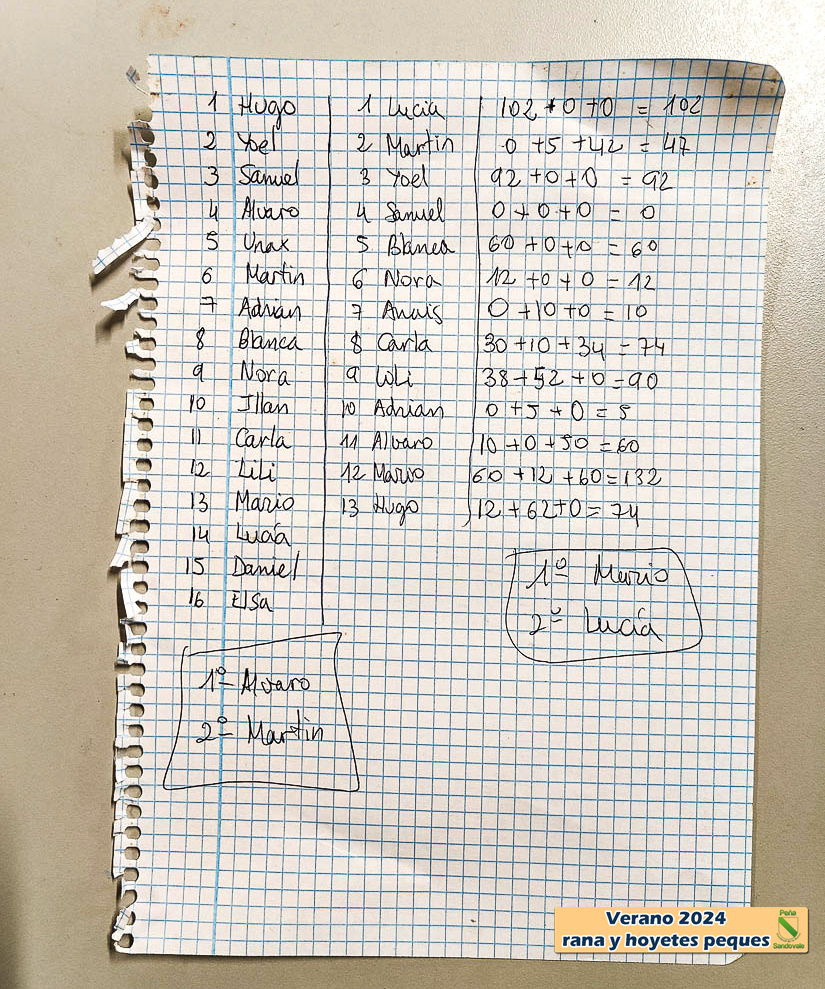 1 Hugo 1 Lucia 102 + 0 + 0 = 102
2 Yoel 2 Martin 0 + 5 + 42 = 47
3 Samuel 3 Yoel 92 + 0 + 0 = 92
4 Alvaro 4 Samuel 0 + 0 + 0 = 0
5 Unax 5 Blanca 60 + 0 + 0 = 60
6 Martin 6 Nora 12 + 0 + 0 = 12
7 Adrian 7 Anais 0 + 10 + 0 = 10
8 Blanca 8 Carla 30 + 10 + 34 = 74
9 Nora 9 Lili 38 + 52 + 0 = 90
10 Illan 10 Adrian 0 + 5 + 0 = 5
11 Carla 11 Alvaro 10 + 0 + 50 = 60
12 Lili 12 Mario 60 + 12 + 60 = 132
13 Mario 13 Hugo 12 + 62 + 0 = 74
14 Lucía
15 Daniel
16 Elsa
1º Mario
2º Lucía
1º Alvaro
2º Martin
Verano 2024
rana y hoyetes peques
Peña
Sandovale